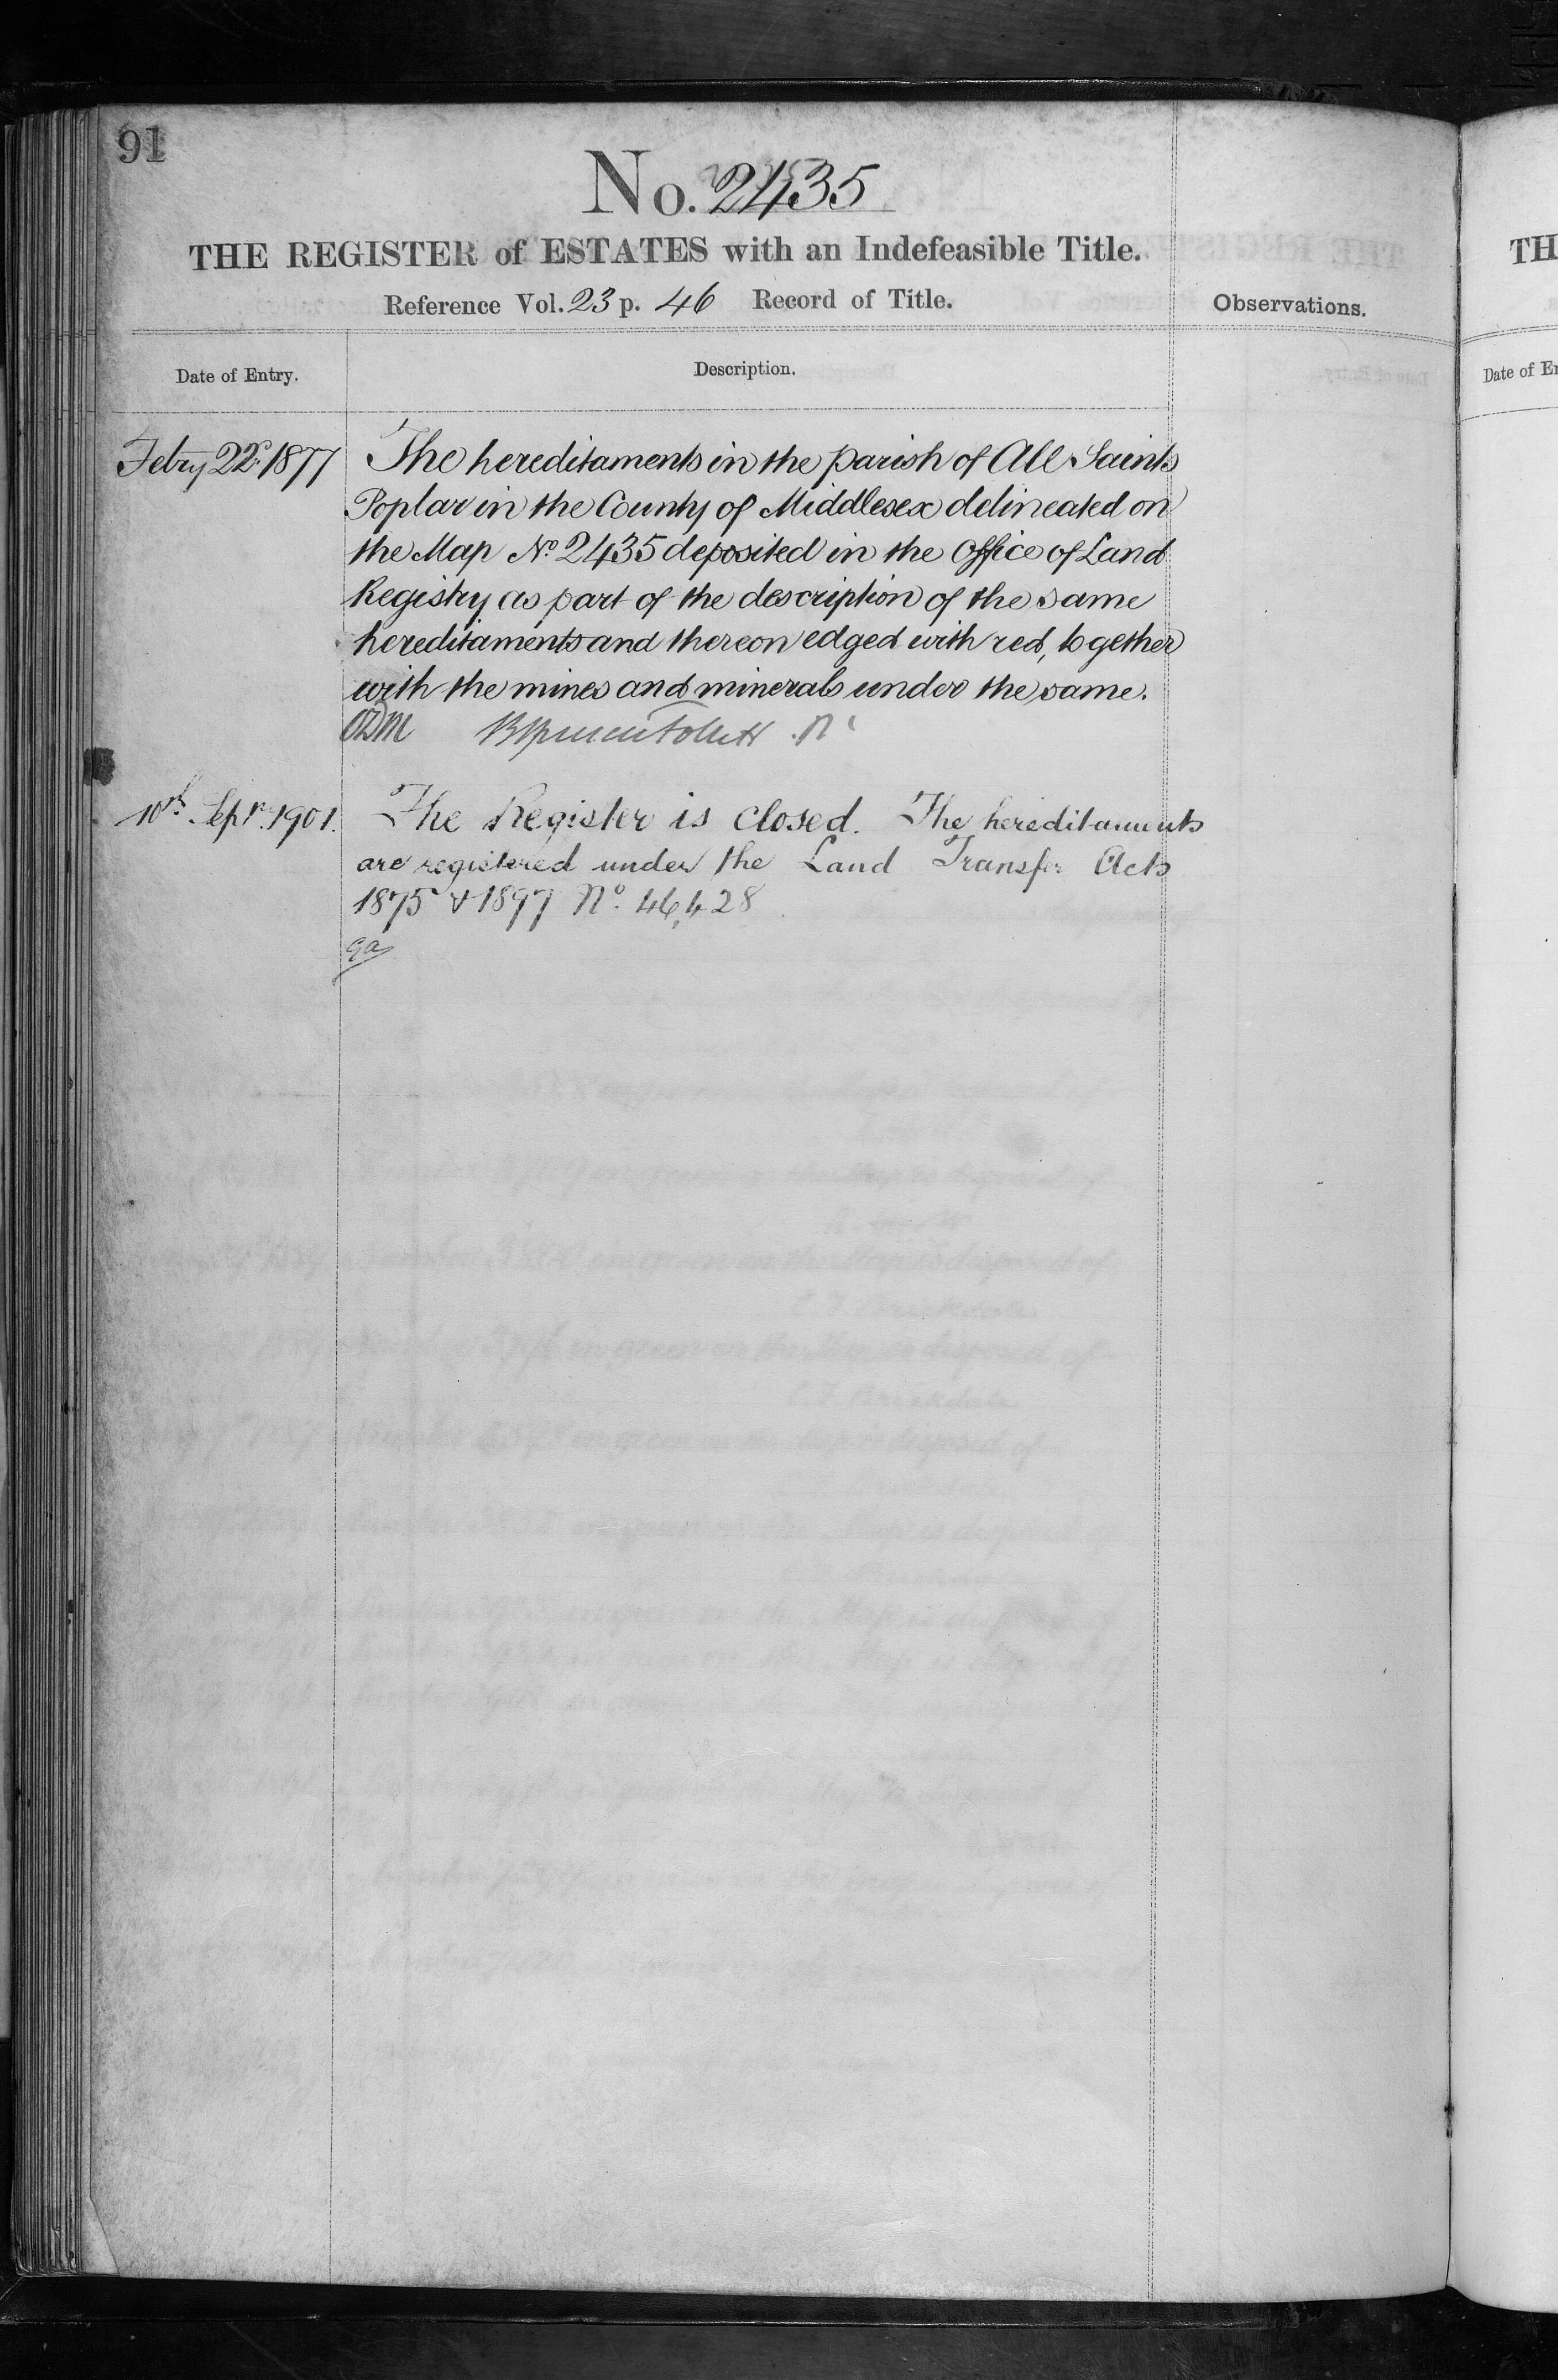 91
No. 2435
THE REGISTER of ESTATES with an Indefeasible Title.
Reference Vol. 23 p. 46 Record of Title.
Observations.
Date of Entry.
Description.
Febry 22d. 1877
The hereditaments in the parish of All Saints
Poplar in the County of Middlesex delineated on
the Map No. 2435 deposited in the Office of Land
Registry as part of the description of the same
hereditaments and thereon edged with red, together
with the mines and minerals under the same.
10th. Sepr. 1901.
The Register is closed. The hereditaments
are registered under the Land Transfer Acts
1875 & 1897 No. 46,428
TH
Date of En